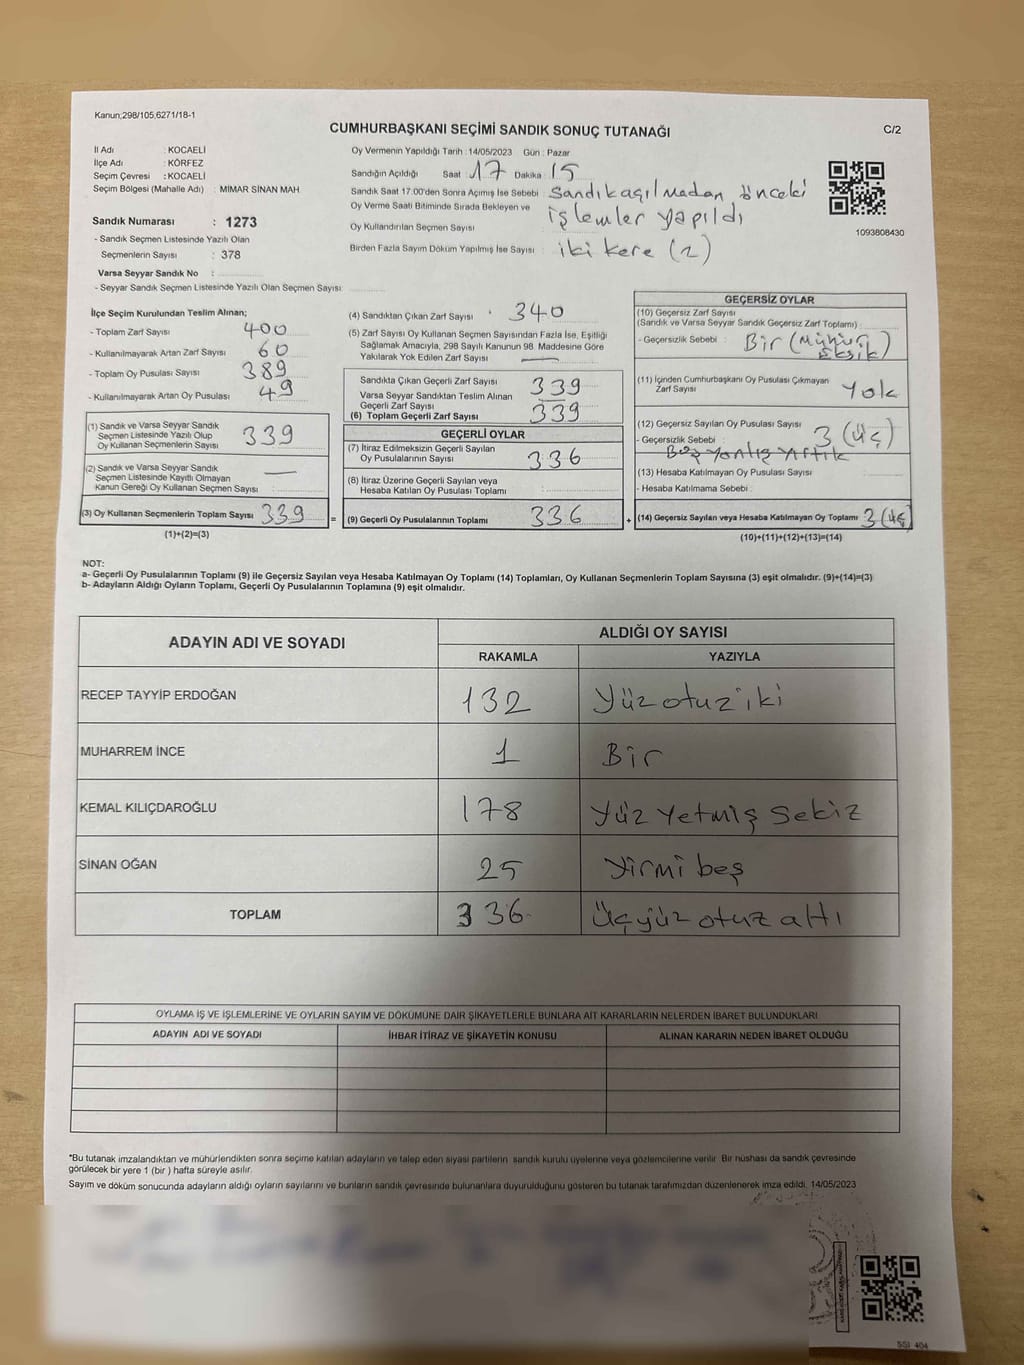 Kanun;298/105,6271/18-1
CUMHURBAŞKANI SEÇİMİ SANDIK SONUÇ TUTANAĞI
C/2
İl Adı : KOCAELİ
İlçe Adı : KÖRFEZ
Seçim Çevresi : KOCAELİ
Seçim Bölgesi (Mahalle Adı) : MİMAR SİNAN MAH
Sandık Numarası : 1273
- Sandık Seçmen Listesinde Yazılı Olan
Seçmenlerin Sayısı : 378
Varsa Seyyar Sandık No :
- Seyyar Sandık Seçmen Listesinde Yazılı Olan Seçmen Sayısı:
Oy Vermenin Yapıldığı Tarih : 14/05/2023 Gün : Pazar
Sandığın Açıldığı Saat : 17 Dakika : 15
Sandık Saat 17.00'den Sonra Açımış İse Sebebi : Sandık açılmadan önceki
Oy Verme Saati Bitiminde Sırada Bekleyen ve işlemler yapıldı
Oy Kullandırılan Seçmen Sayısı :
Birden Fazla Sayım Döküm Yapılmış İse Sayısı : iki kere (2)
1093808430
İlçe Seçim Kurulundan Teslim Alınan;
- Toplam Zarf Sayısı : 400
- Kullanılmayarak Artan Zarf Sayısı : 60
- Toplam Oy Pusulası Sayısı : 389
- Kullanılmayarak Artan Oy Pusulası : 49
(1) Sandık ve Varsa Seyyar Sandık
Seçmen Listesinde Yazılı Olup
Oy Kullanan Seçmenlerin Sayısı : 339
(2) Sandık ve Varsa Seyyar Sandık
Seçmen Listesinde Kayıtlı Olmayan
Kanun Gereği Oy Kullanan Seçmen Sayısı : —
(3) Oy Kullanan Seçmenlerin Toplam Sayısı : 339
(1)+(2)=(3)
(4) Sandıktan Çıkan Zarf Sayısı : 340
(5) Zarf Sayısı Oy Kullanan Seçmen Sayısından Fazla İse, Eşitliği
Sağlamak Amacıyla, 298 Sayılı Kanunun 98. Maddesine Göre
Yakılarak Yok Edilen Zarf Sayısı : —
Sandıkta Çıkan Geçerli Zarf Sayısı : 339
Varsa Seyyar Sandıktan Teslim Alınan
Geçerli Zarf Sayısı : —
(6) Toplam Geçerli Zarf Sayısı : 339
GEÇERLİ OYLAR
(7) İtiraz Edilmeksizin Geçerli Sayılan
Oy Pusulalarının Sayısı : 336
(8) İtiraz Üzerine Geçerli Sayılan veya
Hesaba Katılan Oy Pusulası Toplamı :
= (9) Geçerli Oy Pusulalarının Toplamı : 336
GEÇERSİZ OYLAR
(10) Geçersiz Zarf Sayısı
(Sandık ve Varsa Seyyar Sandık Geçersiz Zarf Toplamı) :
- Geçersizlik Sebebi : Bir (Mühür
Eksik)
(11) İçinden Cumhurbaşkanı Oy Pusulası Çıkmayan
Zarf Sayısı : Yok
(12) Geçersiz Sayılan Oy Pusulası Sayısı : 3 (üç)
- Geçersizlik Sebebi :
Boş Yanlış Yırtık
(13) Hesaba Katılmayan Oy Pusulası Sayısı :
- Hesaba Katılmama Sebebi :
+ (14) Geçersiz Sayılan veya Hesaba Katılmayan Oy Toplamı : 3 (üç)
(10)+(11)+(12)+(13)=(14)
NOT:
a- Geçerli Oy Pusulalarının Toplamı (9) ile Geçersiz Sayılan veya Hesaba Katılmayan Oy Toplamı (14) Toplamları, Oy Kullanan Seçmenlerin Toplam Sayısına (3) eşit olmalıdır. (9)+(14)=(3)
b- Adayların Aldığı Oyların Toplamı, Geçerli Oy Pusulalarının Toplamına (9) eşit olmalıdır.
ADAYIN ADI VE SOYADI
ALDIĞI OY SAYISI
RAKAMLA YAZIYLA
RECEP TAYYİP ERDOĞAN 132 Yüz otuz iki
MUHARREM İNCE 1 Bir
KEMAL KILIÇDAROĞLU 178 Yüz Yetmiş Sekiz
SİNAN OĞAN 25 Yirmi beş
TOPLAM 336 Üçyüz otuz altı
OYLAMA İŞ VE İŞLEMLERİNE VE OYLARIN SAYIM VE DÖKÜMÜNE DAİR ŞİKAYETLERLE BUNLARA AİT KARARLARIN NELERDEN İBARET BULUNDUKLARI
ADAYIN ADI VE SOYADI İHBAR İTİRAZ VE ŞİKAYETİN KONUSU ALINAN KARARIN NEDEN İBARET OLDUĞU
*Bu tutanak imzalandıktan ve mühürlendikten sonra seçime katılan adayların ve talep eden siyasi partilerin sandık kurulu üyelerine veya gözlemcilerine verilir. Bir nüshası da sandık çevresinde
görülecek bir yere 1 (bir ) hafta süreyle asılır.
Sayım ve döküm sonucunda adayların aldığı oyların sayılarını ve bunların sandık çevresinde bulunanlara duyurulduğunu gösteren bu tutanak tarafımızdan düzenlenerek imza edildi. 14/05/2023
SSI 404